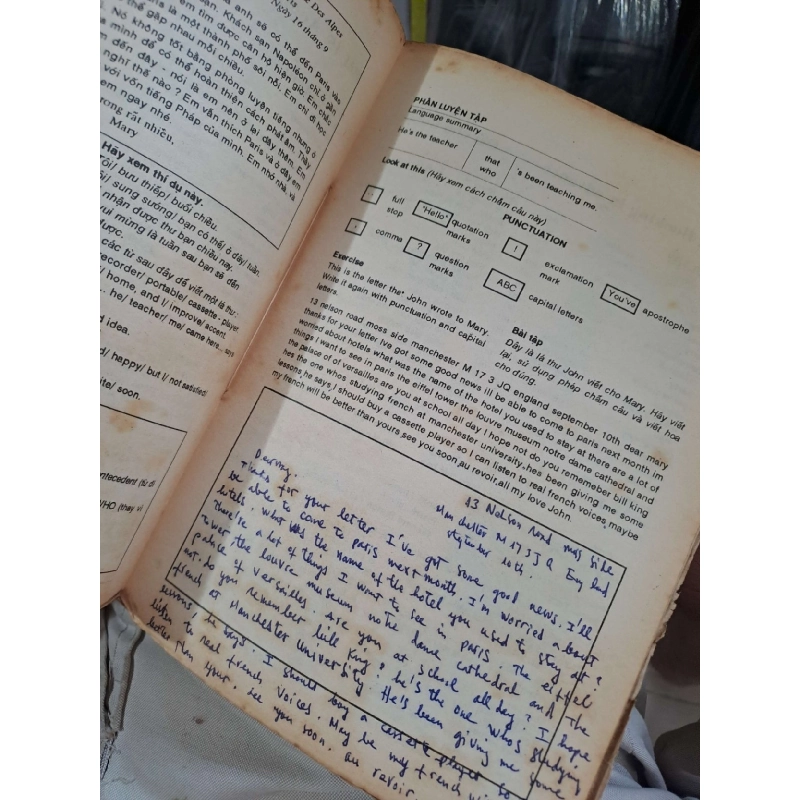 Des Alpes
Ngày 16 tháng 9
anh sẽ có thể đến Paris vào
em tìm được căn hộ hiện giờ. Em chắc
Khách sạn Napoléon chỉ ở gần
là một thành phố sôi nổi. Em chỉ đi học
thể gặp nhau mỗi chiều.
Nó không tốt bằng phòng luyện tiếng nhưng
mình để có thể hoàn thiện cách phát âm. Thầy
đến đây - nói là em nên ở lại đây thêm. Em
nghĩ thế nào ? Em vẫn thích Paris và ở đây em
với vốn tiếng Pháp của mình. Em nhớ nhà và
em ngay nhé.
rất nhiều,
Mary
Hãy xem thí dụ này.
rồi/ bưu thiếp/ buổi chiều.
sung sướng/ bạn có thể/ ở đây/ tuần.
nhận được thư bạn chiều nay.
vui mừng là tuần sau bạn sẽ đến
được.
các từ sau đây để viết một lá thư:
recorder/ portable/ cassette player
/ home, and I/ improve/ accent
... he/ teacher/ me/ came here... says
d idea.
d/ happy/ but I/ not satisfied/
ite/ soon.
antecedent (từ đi
WHO (thay vì
PHẦN LUYỆN TẬP
Language summary
He's the teacher that who 's been teaching me.
Look at this (Hãy xem cách chấm câu này)
PUNCTUATION
. full stop "Hello" quotation marks ! exclamation mark You've apostrophe
, comme ? question marks ABC capital letters
Exercise
This is the letter that John wrote to Mary.
Write it again with punctuation and capital
letters.
Bài tập
Đây là lá thư John viết cho Mary. Hãy viết
lại, sử dụng phép chấm câu và viết hoa
cho đúng.
13 nelson road moss side manchester M 17 3 JQ england september 10th dear mary
thanks for your letter ive got some good news ill be able to come to paris next month im
worried about hotels what was the name of the hotel you used to stay at there are a lot of
things I want to see in paris the eiffel tower the louvre museum notre dame cathedral and
the palace of of versailles are you at school all day I hope not do you rememeber bill king
hes the one whos studying french at manchester university hes been giving me some
lessons he says I should buy a cassette player so I can listen to real french voices maybe
my french will be better than yours see you soon au revoir all my love John.
13 Nelison Road mos side
M 17 3 J Q Eng land
10th.
Thanks for your letter I've got some good news. I'll
be able to come to paris next month. I'm worried about
hotels. What was the name of the hotel you used to stay at?
There're a lot of things I want to see in PARIS. The eiffel
tower the louvre museum notre dame cathedral and the
palace of versailles. Are you at school all day? I hope
not. Do you remember bill King? he's the one who's studying
french at Manchester University. He's been giving me some
lessons, he says. I should buy a cassette player so
listen to real french voices. May be my french
better than your. see you soon. au revoir.